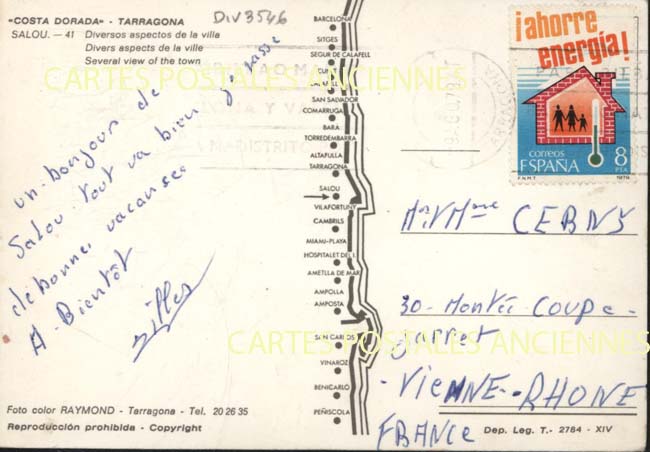 "COSTA DORADA" - TARRAGONA
SALOU. - 41 Diversos aspectos de la villa
Divers aspects de la ville
Several view of the town
DIV3546
un bonjour de
Salou tout va bien je passe
de bonnes vacances
A Bientôt
BARCELONA
SITGES
SEGUR DE CALAFELL
SAN SALVADOR
COMARRUGA
BARÁ
TORREDEMBARRA
ALTAFULLA
TARRAGONA
SALOU
VILAFORTUNY
CAMBRILS
MIAMI-PLAYA
HOSPITALET DEL I.
AMETLLA DE MAR
AMPOLLA
AMPOSTA
SAN CARLOS
VINAROZ
BENICARLÓ
PEÑISCOLA
¡ahorre
energía!
correos
ESPAÑA 8
PTA
F.N.M.T. 1979
Mr Mme CERNY
30 - Montée Coupe -
Jarret
- VIENNE - RHONE
FRANCE
Foto color RAYMOND - Tarragona - Tel. 20 26 35
Reproducción prohibida - Copyright
Dep. Leg. T.- 2784 - XIV
CARTES POSTALES ANCIENNES
CARTES POSTALES ANCIENNES